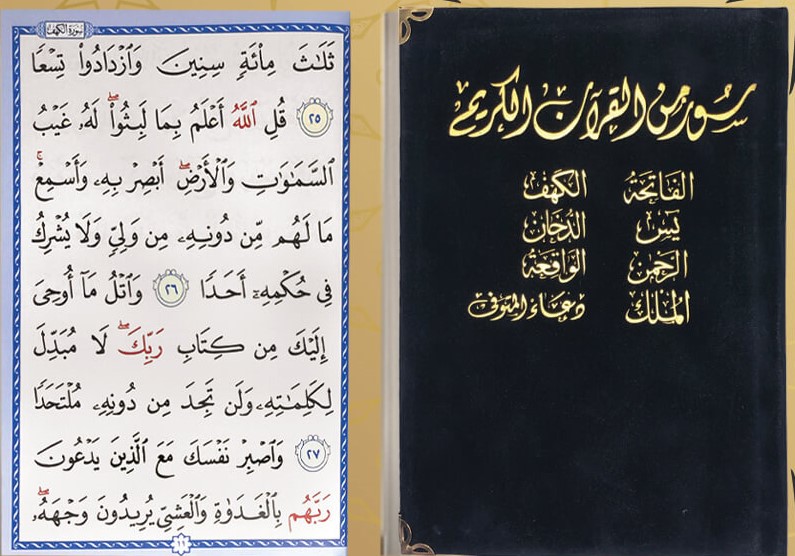 سور من القرآن الكريم
الفاتحة الكهف
يس الدخان
الرحمن الواقعة
الملك دعاء المتوفى
سورة الكهف
ثَلَٰثَ مِا۟ئَةٖ سِنِينَ وَٱزۡدَادُواْ تِسۡعٗا
٢٥ قُلِ ٱللَّهُ أَعۡلَمُ بِمَا لَبِثُواْۖ لَهُۥ غَيۡبُ
ٱلسَّمَٰوَٰتِ وَٱلۡأَرۡضِۖ أَبۡصِرۡ بِهِۦ وَأَسۡمِعۡۚ
مَا لَهُم مِّن دُونِهِۦ مِن وَلِيّٖ وَلَا يُشۡرِكُ
فِي حُكۡمِهِۦٓ أَحَدٗا ٢٦ وَٱتۡلُ مَآ أُوحِيَ
إِلَيۡكَ مِن كِتَابِ رَبِّكَۖ لَا مُبَدِّلَ
لِكَلِمَٰتِهِۦ وَلَن تَجِدَ مِن دُونِهِۦ مُلۡتَحَدٗا
٢٧ وَٱصۡبِرۡ نَفۡسَكَ مَعَ ٱلَّذِينَ يَدۡعُونَ
رَبَّهُم بِٱلۡغَدَوٰةِ وَٱلۡعَشِيِّ يُرِيدُونَ وَجۡهَهُۥۖ